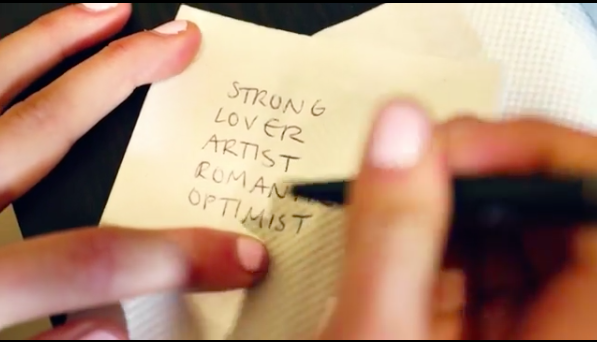 STRONG
LOVER
ARTIST
ROMANTIC
OPTIMIST